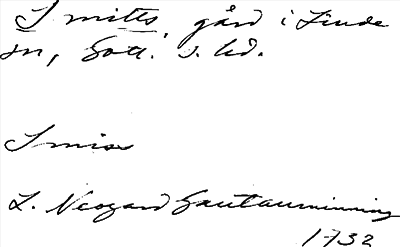 Smitts, gård i Linde
sn, Gotl. s. hd.
Smiss
L. Neogard Gautauminning
1732